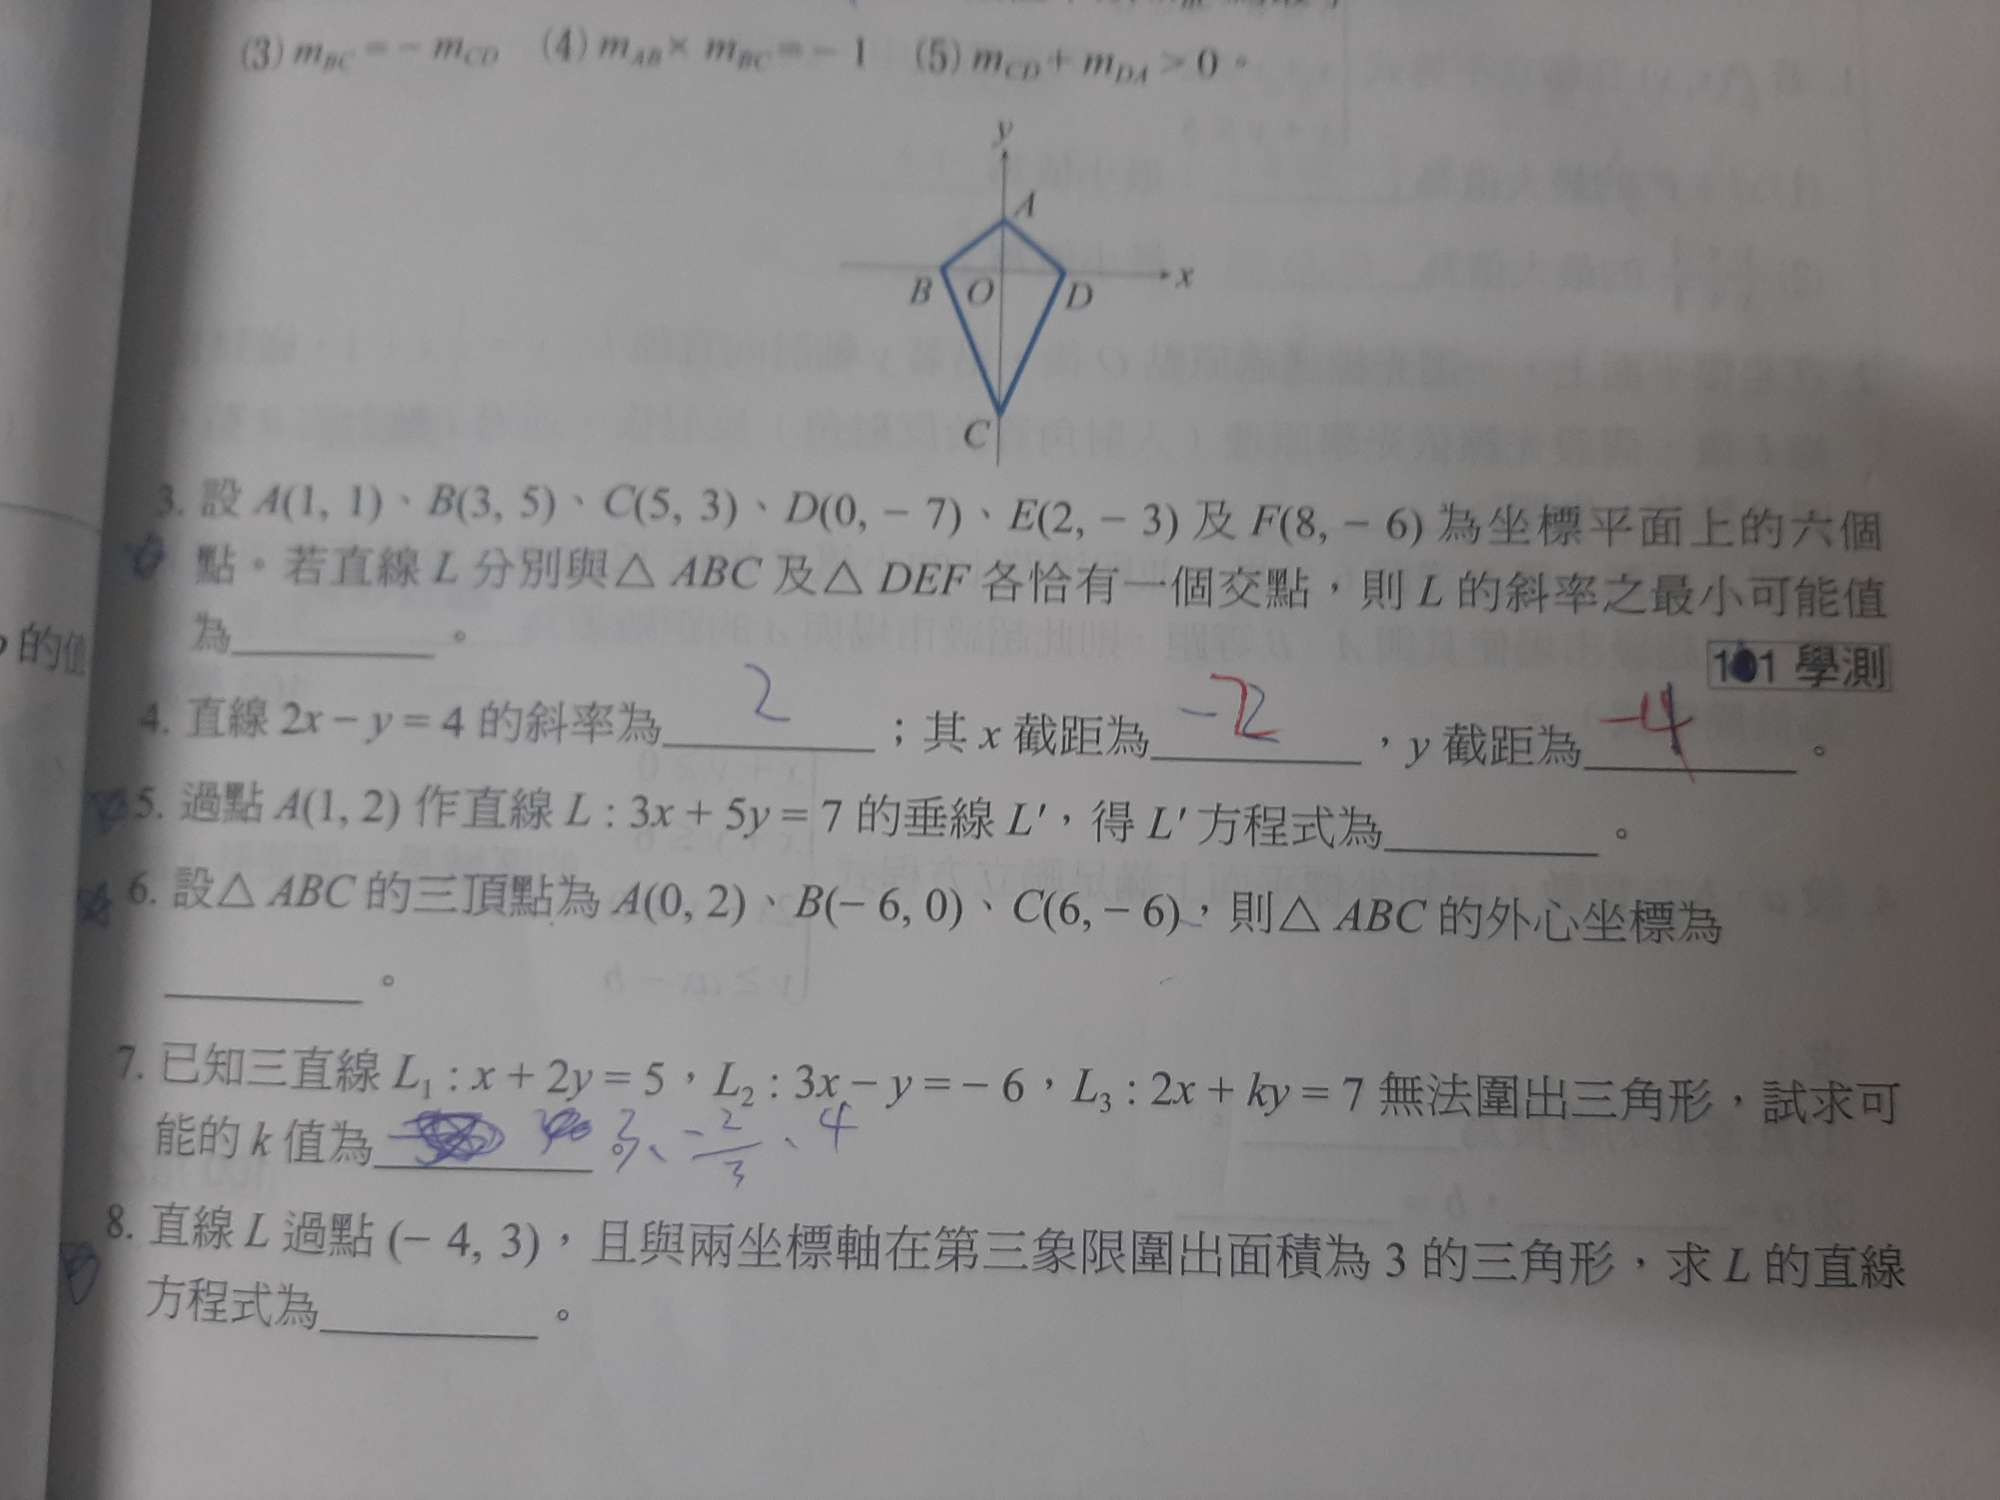 (3) m_BC = − m_CD (4) m_AB × m_BC = − 1 (5) m_CD + m_DA > 0。
y
A
B O D x
C
3. 設 A(1, 1)、B(3, 5)、C(5, 3)、D(0, − 7)、E(2, − 3) 及 F(8, − 6) 為坐標平面上的六個
點。若直線 L 分別與△ ABC 及△ DEF 各恰有一個交點，則 L 的斜率之最小可能值
為________。
101 學測
的值
4. 直線 2x − y = 4 的斜率為 2 ；其 x 截距為 -2 ，y 截距為 -4 。
5. 過點 A(1, 2) 作直線 L : 3x + 5y = 7 的垂線 L′，得 L′ 方程式為________。
6. 設△ ABC 的三頂點為 A(0, 2)、B(− 6, 0)、C(6, − 6)，則△ ABC 的外心坐標為
________。
7. 已知三直線 L₁ : x + 2y = 5，L₂ : 3x − y = − 6，L₃ : 2x + ky = 7 無法圍出三角形，試求可
能的 k 值為________ 3、-2/3、4
8. 直線 L 過點 (− 4, 3)，且與兩坐標軸在第三象限圍出面積為 3 的三角形，求 L 的直線
方程式為________。